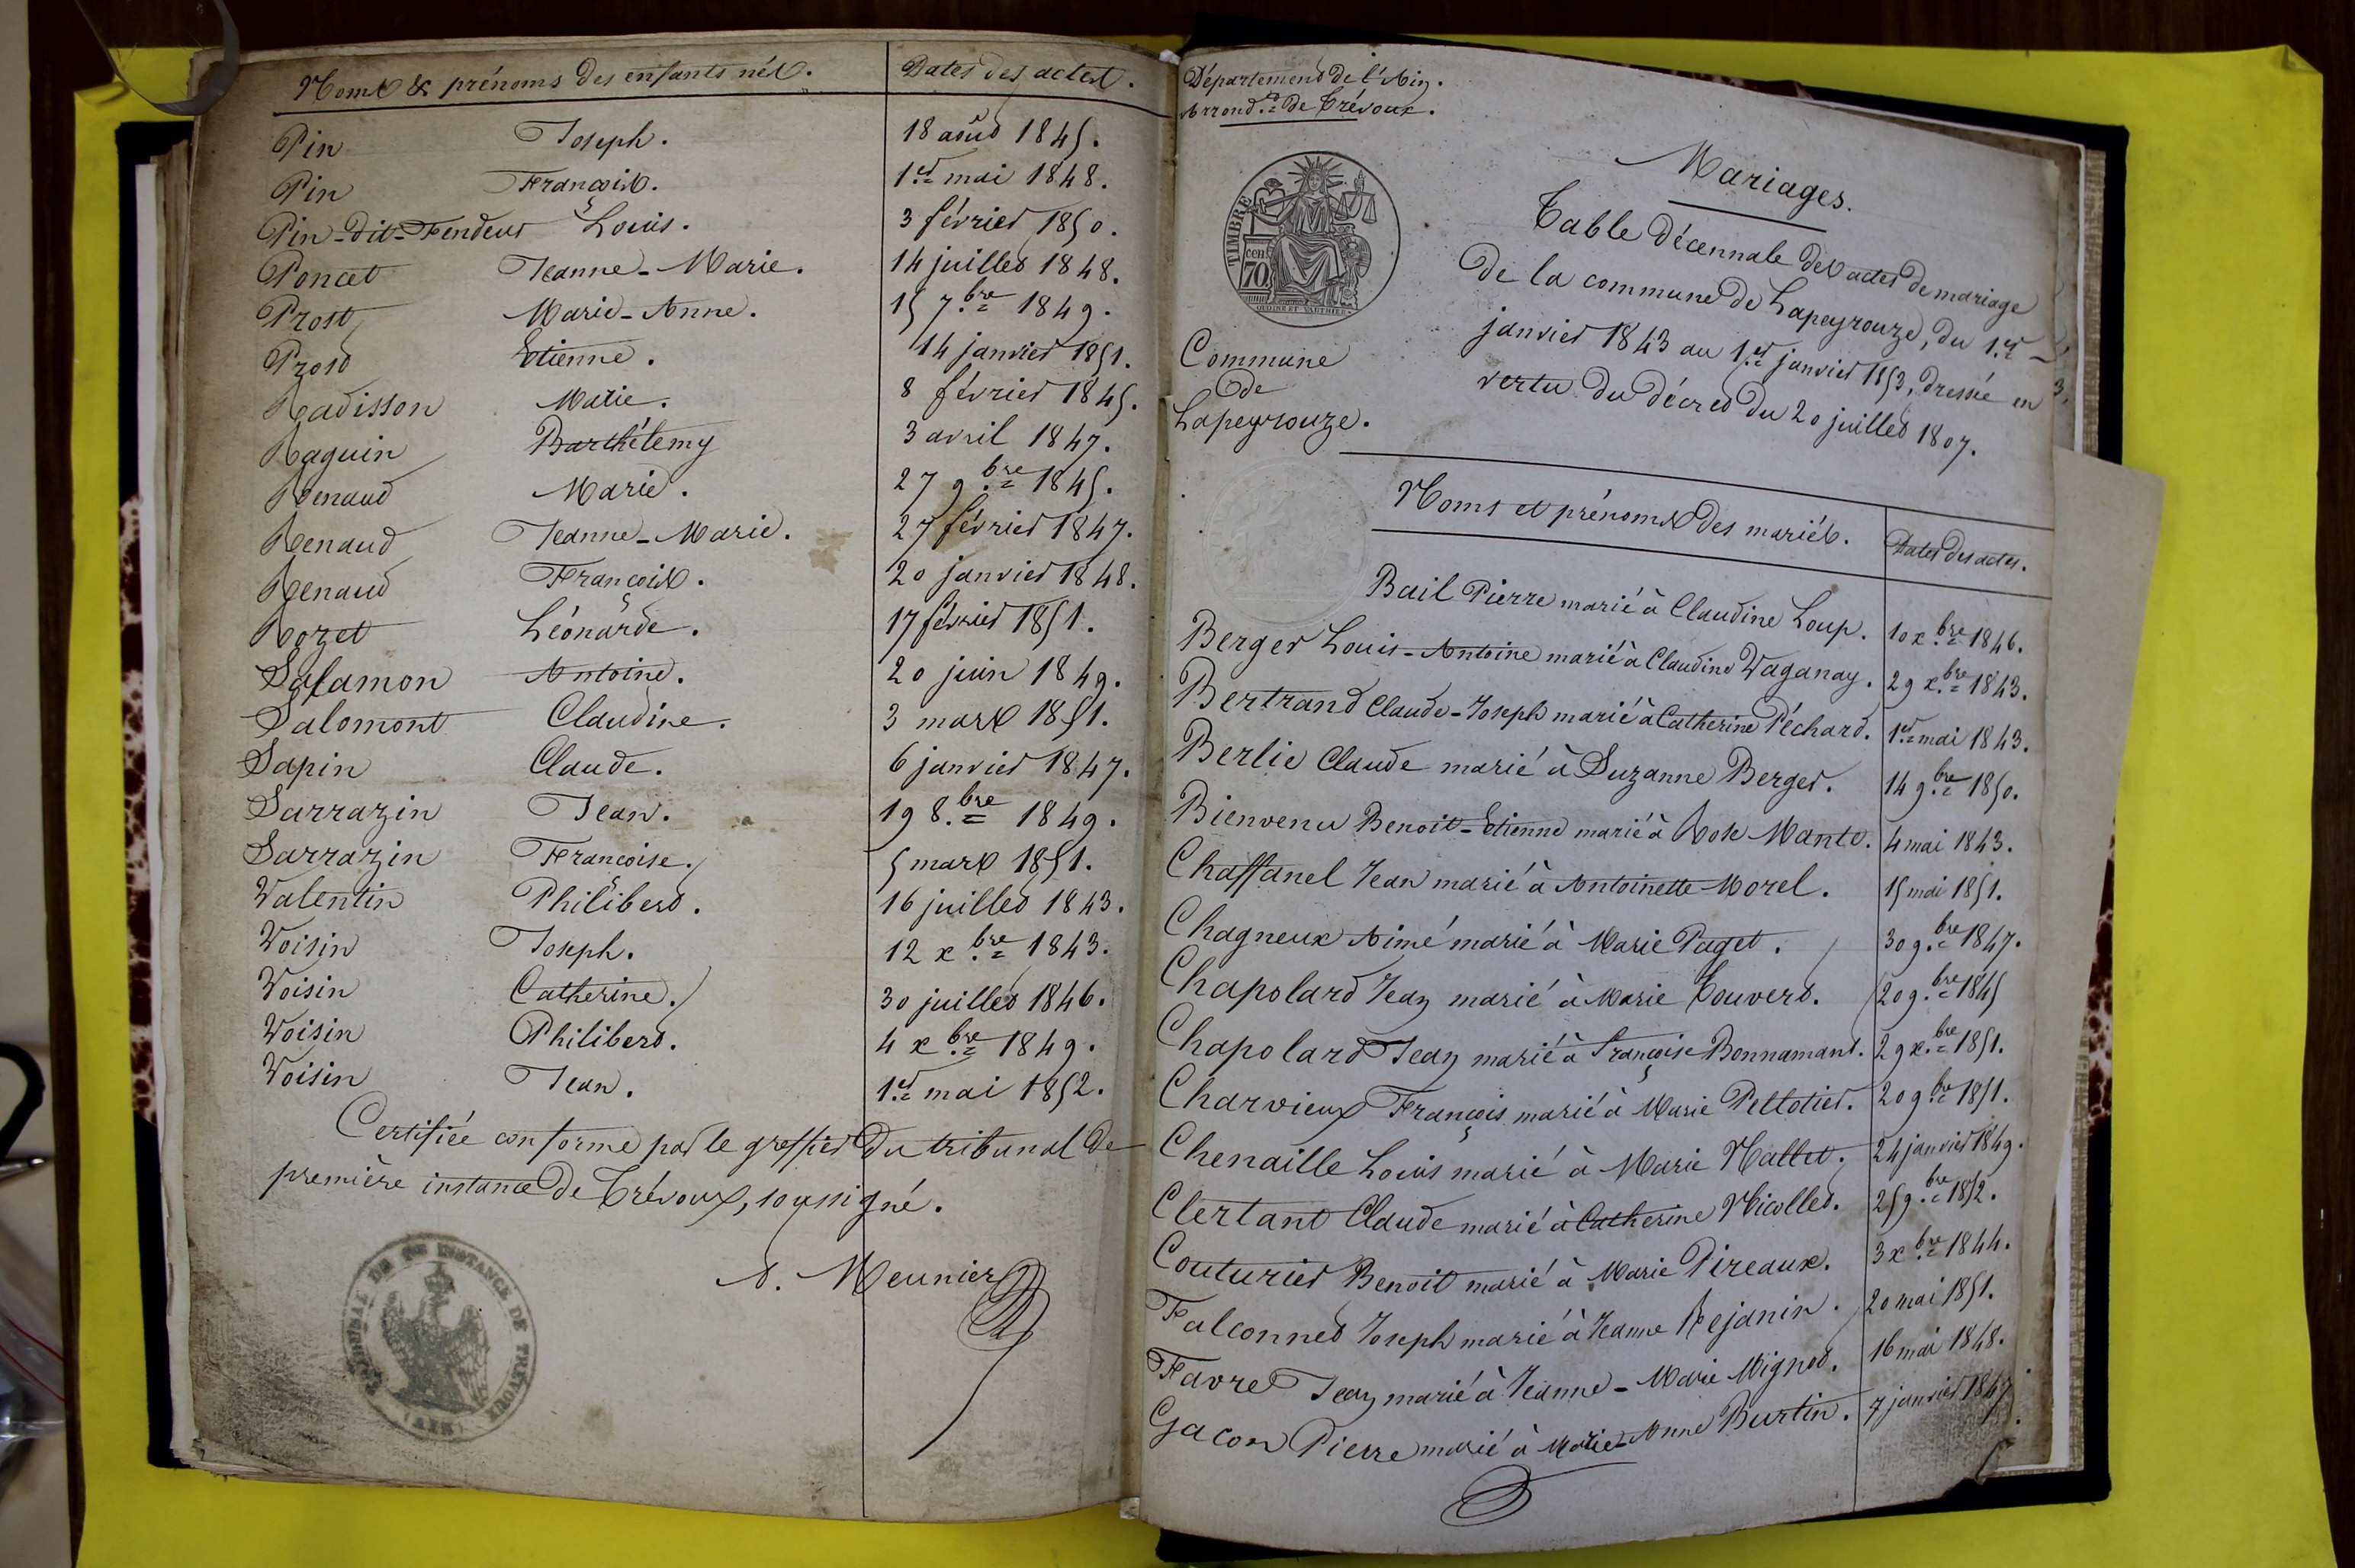 Noms & prénoms des enfants nés. Dates des actes.
Pin Joseph. 18 août 1845.
Pin François. 1.er mai 1848.
Pin-dit-Fendeur Louis. 3 février 1850.
Poncet Jeanne-Marie. 14 juillet 1848.
Prost Marie-Anne. 15 7.bre 1849.
Prost Etienne. 14 janvier 1851.
Radisson Marie. 8 février 1845.
Raquin Barthélemy 3 avril 1847.
Renaud Marie. 27 9.bre 1845.
Renaud Jeanne-Marie. 27 février 1847.
Renaud François. 20 janvier 1848.
Rozet Léonarde. 17 février 1851.
Salamon Antoine. 20 juin 1849.
Salomont Claudine. 3 mars 1851.
Sapin Claude. 6 janvier 1847.
Sarrazin Jean. 19 8.bre 1849.
Sarrazin Françoise. 5 mars 1851.
Valentin Philibert. 16 juillet 1843.
Voisin Joseph. 12 x.bre 1843.
Voisin Catherine. 30 juillet 1846.
Voisin Philibert. 4 x.bre 1849.
Voisin Jean. 1.er mai 1852.
Certifiée conforme par le greffier du tribunal de
première instance de Trévoux, soussigné.
A. Meunier
TRIBUNAL DE 1RE INSTANCE DE TRÉVOUX
(AIN)
Département de l'Ain.
Arrond.t de Trévoux.
TIMBRE
cen.
70
Commune
de
Lapeyrouze.
Mariages.
Table décennale des actes de mariage
de la commune de Lapeyrouze, du 1.er
janvier 1843 au 1.er janvier 1853, dressée en
vertu du décret du 20 juillet 1807.
Noms et prénoms des mariés. Dates des actes.
Bail Pierre marié à Claudine Loup. 10 x.bre 1846.
Berger Louis-Antoine marié à Claudine Vaganay. 29 x.bre 1843.
Bertrand Claude-Joseph marié à Catherine Péchard. 1.er mai 1843.
Berlie Claude marié à Suzanne Berger. 14 9.bre 1850.
Bienvenu Benoit-Etienne marié à Rose Mante. 4 mai 1843.
Chaffanel Jean marié à Antoinette Morel. 15 mai 1851.
Chagneux Aimé marié à Marie Paget. 30 9.bre 1847.
Chapolard Jean marié à Marie Touvert. 20 9.bre 1845
Chapolard Jean marié à Françoise Bonnamant. 29 x.bre 1851.
Charvieux François marié à Marie Pellotier. 20 9.bre 1851.
Chenaille Louis marié à Marie Nallet. 24 janvier 1849.
Clertant Claude marié à Catherine Nicollet. 25 9.bre 1852.
Couturier Benoit marié à Marie Pireaux. 3 x.bre 1844.
Falconnet Joseph marié à Jeanne Rejanin. 20 mai 1851.
Favre Jean marié à Jeanne-Marie Mignot. 16 mai 1848.
Gacon Pierre marié à Marie-Anne Burtin. 7 janvier 1847.